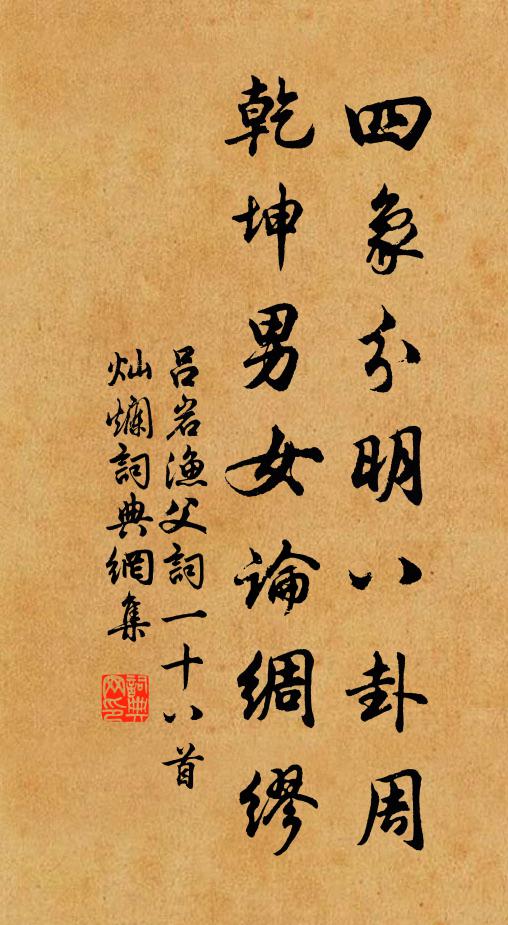 四象分明八卦周
乾坤男女論綢繆
呂岩漁父詞一十八首
灿爛詞典網集
詞典
网印